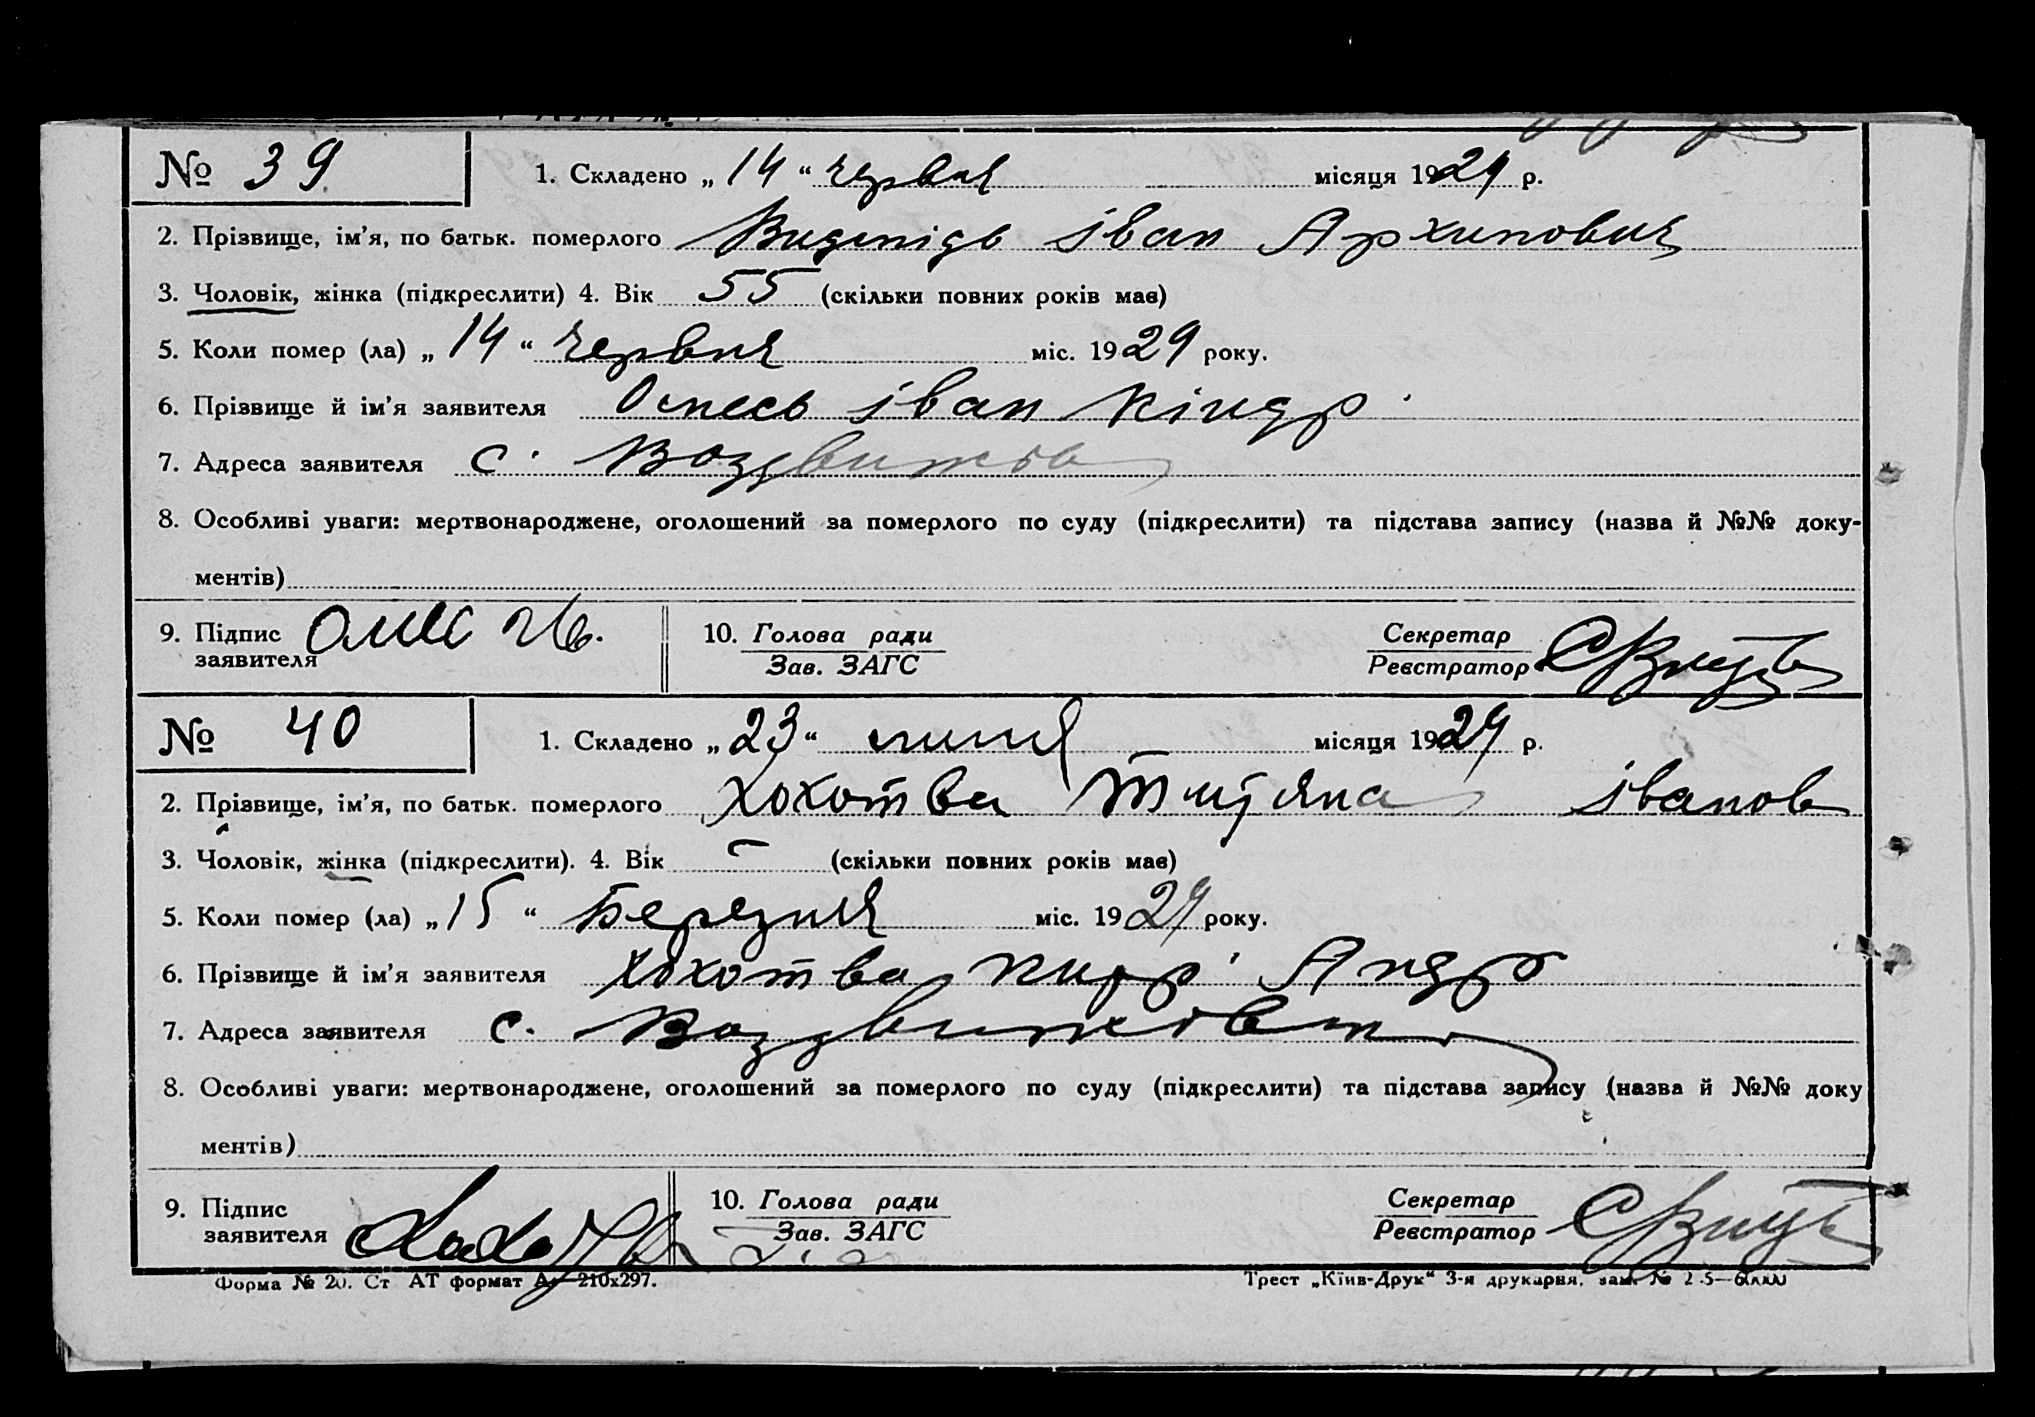 № 39 1. Складено „ 14 “ червня місяця 1929 р.
2. Прізвище, ім’я, по батьк. померлого іван Архипович
3. Чоловік, жінка (підкреслити) 4. Вік 55 (скільки повних років мав)
5. Коли помер (ла) „ 14 “ червня міс. 1929 року.
6. Прізвище й ім’я заявителя Олесь іван Кіндр.
7. Адреса заявителя с.
8. Особливі уваги: мертвонароджене, оголошений за померлого по суду (підкреслити) та підстава запису (назва й №№ доку-
ментів)
9. Підпис заявителя Олес Ив. 10. Голова ради Секретар
Зав. ЗАГС Реєстратор
№ 40 1. Складено „ 23 “ липня місяця 1929 р.
2. Прізвище, ім’я, по батьк. померлого Хохотва Титяна іванов
3. Чоловік, жінка (підкреслити). 4. Вік – (скільки повних років мав)
5. Коли помер (ла) „ 15 “ Березня міс. 1929 року.
6. Прізвище й ім’я заявителя Хохотва Андр
7. Адреса заявителя с.
8. Особливі уваги: мертвонароджене, оголошений за померлого по суду (підкреслити) та підстава запису (назва й №№ доку
ментів)
9. Підпис заявителя 10. Голова ради Секретар
Зав. ЗАГС Реєстратор
Форма № 20. Ст АТ формат А4 210х297. Трест „Київ-Друк“ 3-я друкарня, зам. №